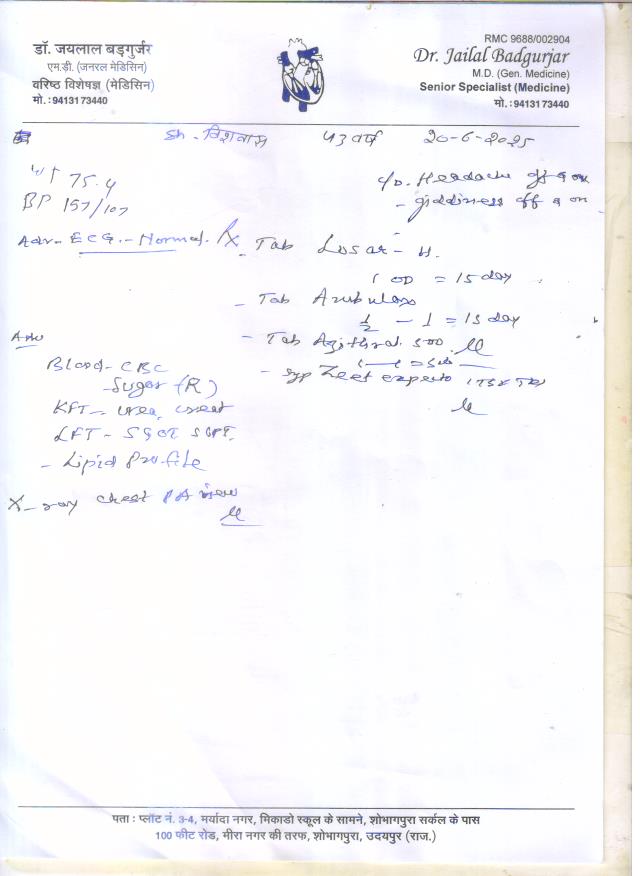 डॉ. जयलाल बड़गुर्जर
एम.डी. (जनरल मेडिसिन)
वरिष्ठ विशेषज्ञ (मेडिसिन)
मो. : 9413173440
RMC 9688/002904
Dr. Jailal Badgurjar
M.D. (Gen. Medicine)
Senior Specialist (Medicine)
मो. : 9413173440
Sh - विश्वास 43 वर्ष 20-6-2025
WT 75.4
BP 157/107
C/o. Headache off & on
- giddiness off & on
Adv - ECG. - Normal.
Rx
- Tab Losar - H.
1 OD = 15 day
- Tab
1/2 - 1 = 15 day
- Tab Azithral 500
- Syp Zeet expecto
Adv
Blood - CBC
- Sugar (R)
KFT - Urea, Creat
LFT - SGOT SGPT.
- Lipid Profile
X-ray chest PA view
पता : प्लॉट नं. 3-4, मर्यादा नगर, मिकाडो स्कूल के सामने, शोभागपुरा सर्कल के पास
100 फीट रोड, मीरा नगर की तरफ, शोभागपुरा, उदयपुर (राज.)